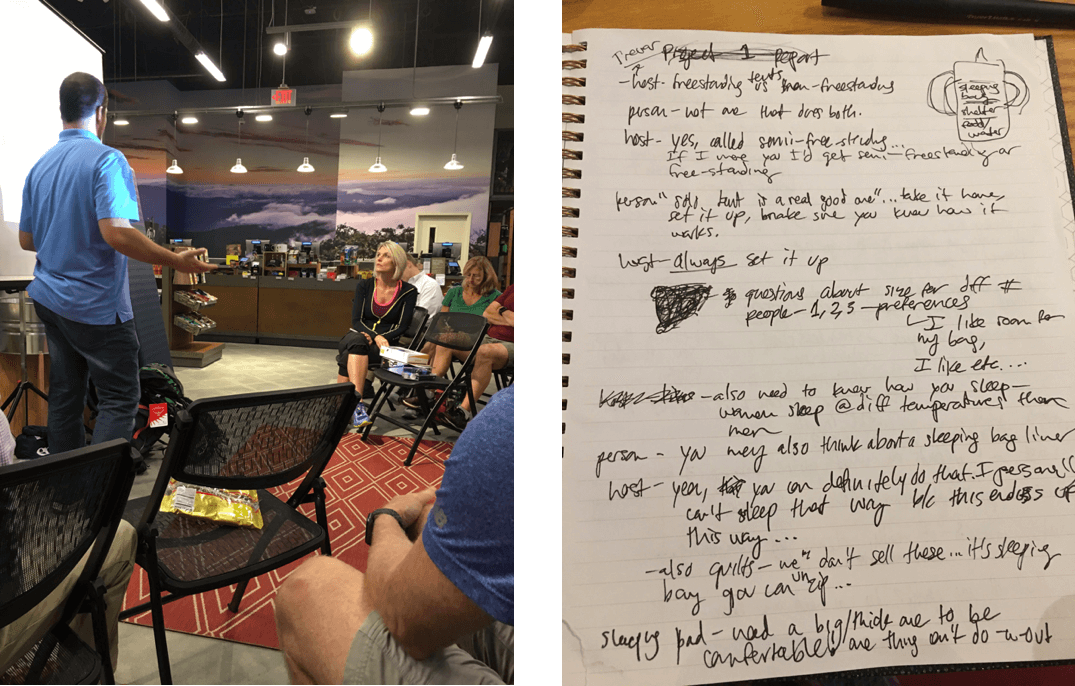 EXIT
Trevor
Project 1 Report
-host-freestanding tents vs non-freestanding
person-not one that does both.
host-yes, called semi-free-standing...
If I were you I'd get semi-freestanding or
free-standing
person "solo tent is a real good one"... take it home,
set it up, make sure you know how it
works.
host-always set it up
questions about size for diff #
people-1,2,3-preferences
I like room for
my bag,
I like etc....
-also need to know how you sleep-
women sleep @ diff temperatures than
men
person - you may also think about a sleeping bag liner
host-yea, you can definitely do that. I personally
can't sleep that way b/c this ends up
this way...
-also quilts-we don't sell these...it's sleeping
bag you can unzip...
sleeping pad-need a big/thick one to be
comfortable, one thing can't do w-out
sleeping
bag
shelter
food/
water